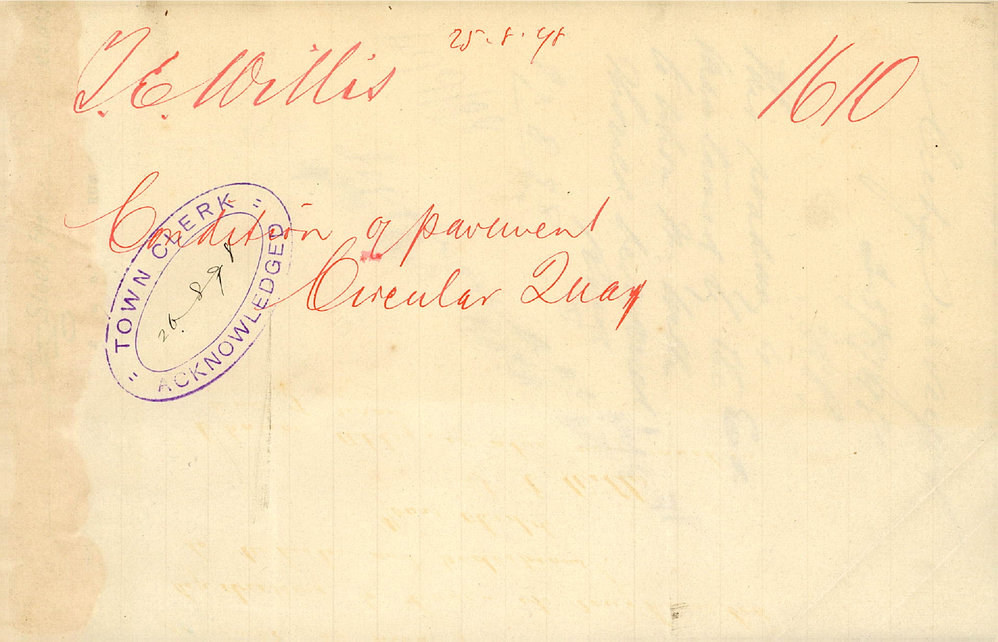 T. E. Willis
25-8-98
1610
Condition of pavement
Circular Quay
TOWN CLERK
26 8 98
ACKNOWLEDGED